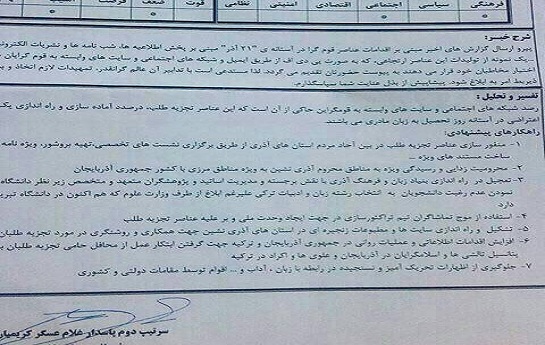 فرهنگی سیاسی اجتماعی اقتصادی امنیتی نظامی قوت ضعف فرصت
شرح خبر:
پیرو ارسال گزارش های اخیر مبنی بر اقدامات عناصر قوم گرا در آستانه ی "۲۱ آذر" مبنی بر پخش اطلاعیه ها، شب نامه ها و نشریات الکترونیک
یک نمونه از تولیدات این عناصر ارتجاعی، که به صورت پی دی اف از طریق ایمیل و شبکه های اجتماعی و سایت های وابسته به قوم گرایان
اختیار مخاطبان خود قرار می دهند به پیوست حضورتان تقدیم می گردد. لذا مستدعی است با تدابیر آن عالم گرانقدر، تمهیدات لازم اتخاذ و
ذیربط امر به ابلاغ شود. پیشاپیش از بذل عنایت شما سپاسگذارم.
تفسیر و تحلیل:
رصد شبکه های اجتماعی و سایت های وابسته به قومگراین حاکی از آن است که این عناصر تجزیه طلب، درصدد آماده سازی و راه اندازی یک
اعتراضی در آستانه روز تحصیل به زبان مادری می باشند.
راهکارهای پیشنهادی:
۱- منفور سازی عناصر تجزیه طلب در بین آحاد مردم استان های آذری از طریق برگزاری نشست های تخصصی،تهیه بروشور، ویژه نامه
ساخت مستند های ویژه ...
۲- محرومیت زدایی و رسیدگی ویژه به مناطق محروم آذری نشین به ویژه مناطق مرزی با کشور جمهوری آذربایجان
۳- تعجیل در راه اندازی بنیاد زبان و فرهنگ آذری با نقش برجسته و مدیریت اساتید و پژوهشگران متعهد و متخصص زیر نظر دانشگاه
نمودن عدم رغبت دانشجویان به انتخاب رشته زبان و ادبیات ترکی علیرغم ابلاغ از طرف وزارت علوم که هم اکنون در دانشگاه تبریز
دارد
۴- استفاده از موج تماشاگران تیم تراکتورسازی در جهت ایجاد وحدت ملی و بر علیه عناصر تجزیه طلب
۵- تشکیل و راه اندازی سایت ها و مطبوعات زنجیره ای در استان های آذری نشین جهت همکاری و روشنگری در مورد تجزیه طلبان
۶- افزایش اقدامات اطلاعاتی و عملیات روانی در جمهوری آذربایجان و ترکیه جهت گرفتن ابتکار عمل از محافل حامی تجزیه طلبان
پتانسیل تالشی ها و اسلامگرایان در آذربایجان و علوی ها و اکراد در ترکیه
۷- جلوگیری از اظهارات تحریک آمیز و نسنجیده در رابطه با زبان ، آداب و ... اقوام توسط مقامات دولتی و کشوری
سرتیپ دوم پاسدار غلام عسگر کریمیان